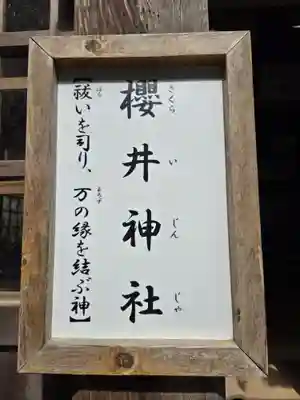 櫻井神社
さくらいじんじゃ
【祓いを司り、万の縁を結ぶ神】
はら
よろず